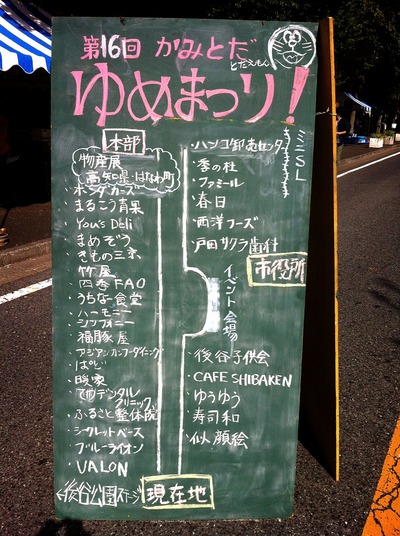 第16回 かみとだ
とだえもん
ゆめまつり!
本部
物産展
高知県・はなわ町
・ホンダカーズ
・まるこう青果
・You's Deli
・まめぞう
・きもの三京
・竹屋
・四季 FAO
・うちなー食堂
・ハーモニー
・シンフォニー
・福豚屋
・アジアンカンフーダイニング
・ぱど
・暖家
・デンタル
クリニック
・ふるさと整体院
・シークレットベース
・ブルーライオン
・VALON
後谷公園ステージ
現在地
・ハンコ卸売センター
・季の杜
・ファミール
・春日
・西洋フーズ
・戸田サクラ歯科
ミニSL
市役所
イベント会場
・後谷子供会
・CAFE SHIBAKEN
・ゆうゆう
・寿司和
・似顔絵